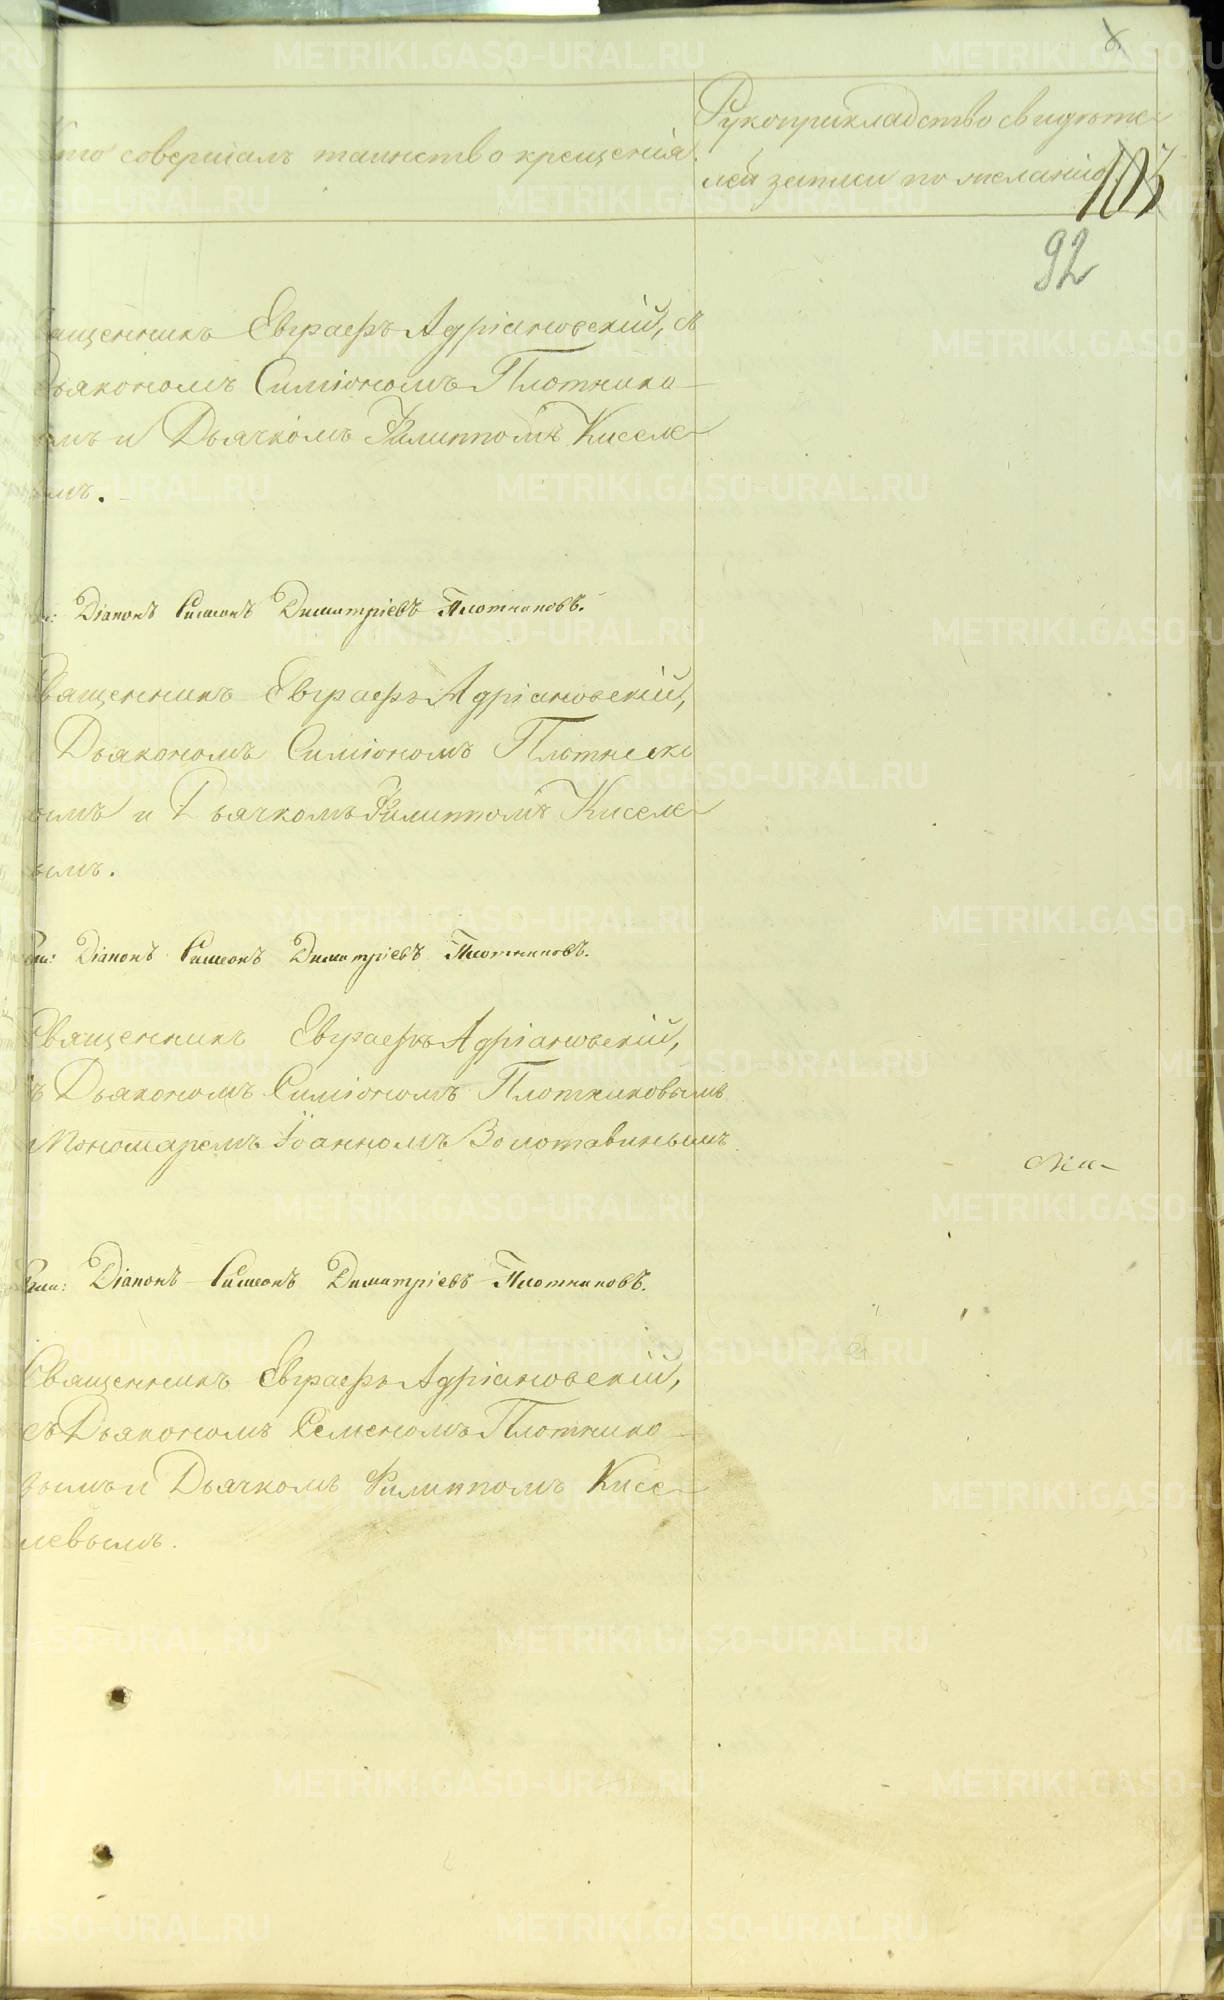 Кто совершалъ таинство крещенія.
Рукоприкладство свидѣте-
лей записи по желанію.
103
92
Священникъ Евграфъ Адріановскій, съ
Дьякономъ Симіономъ Плотнико-
вымъ и Дьячкомъ Филиппомъ Киселе-
вымъ.
Діаконъ Симеонъ Димитріевъ Плотниковъ.
Священникъ Евграфъ Адріановскій,
Дьякономъ Симіономъ Плотнико
вымъ и Дьячкомъ Филиппомъ Киселе-
вымъ.
Діаконъ Симеонъ Димитріевъ Плотниковъ.
Священникъ Евграфъ Адріановскій,
съ Дьякономъ Симіономъ Плотниковымъ
Пономаремъ Іоанномъ Золотавинымъ
Діаконъ Симеонъ Димитріевъ Плотниковъ.
Священникъ Евграфъ Адріановскій,
съ Дьякономъ Семеномъ Плотнико-
вымъ и Дьячкомъ Филиппомъ Кисе-
левымъ.
METRIKI.GASO-URAL.RU